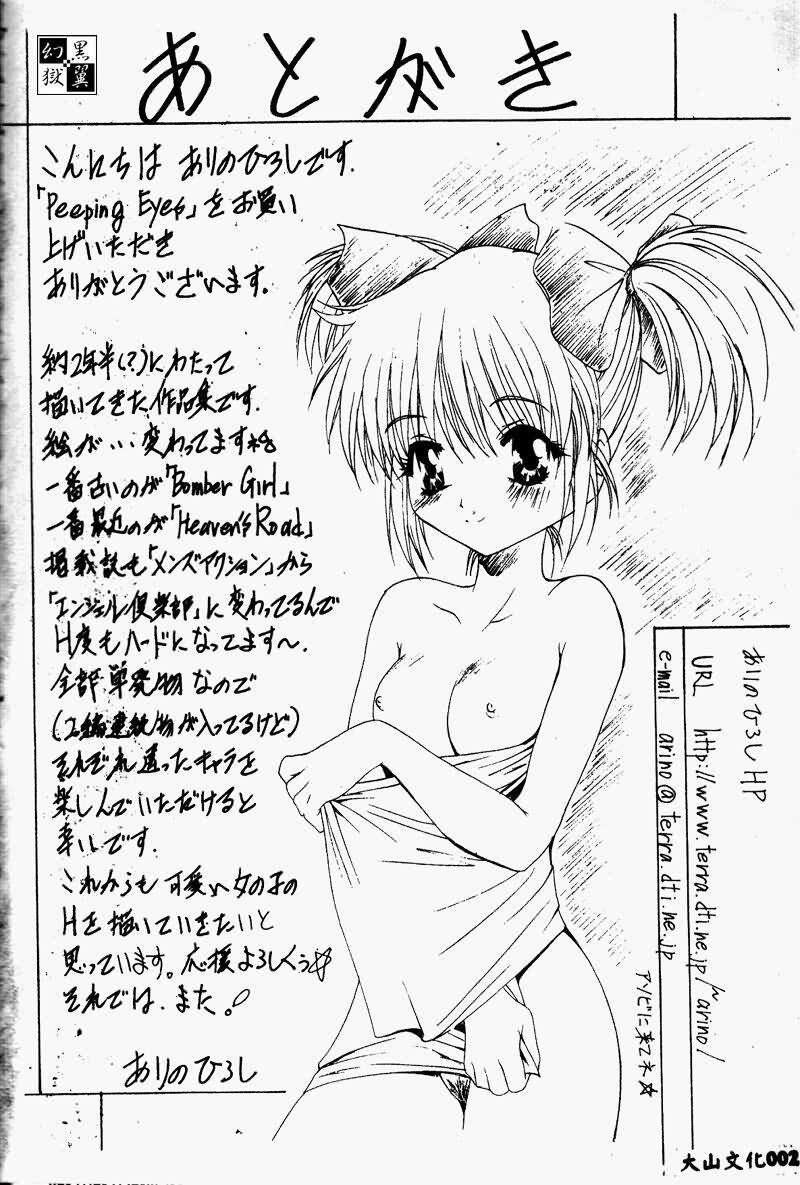 幻黒
獄翼
あとがき
こんにちは ありのひろしです.
「Peeping Eyes」をお買い
上げいただき
ありがとうございます。
約2年半(?)にわたって
描いてきた作品集です.
絵が・・・変わってますネ
一番古いのが「Bomber Girl」
一番最近のが「Heaven's Road」
掲載誌も「メンズアクション」から
「エンジェル倶楽部」に変わってるんで
H度もハードになってます〜.
全部単発物なので
(2編連続物が入ってるけど)
それぞれ違ったキャラを
楽しんでいただけると
幸いです.
これからも可愛い女の子の
Hを描いていきたいと
思っています。応援よろしくぅ☆
それでは、また。
ありのひろし
ありのひろしHP
URL http://www.terra.dti.ne.jp/~arino/
e-mail arino@terra.dti.ne.jp
アソビに来てネ☆
大山文化002